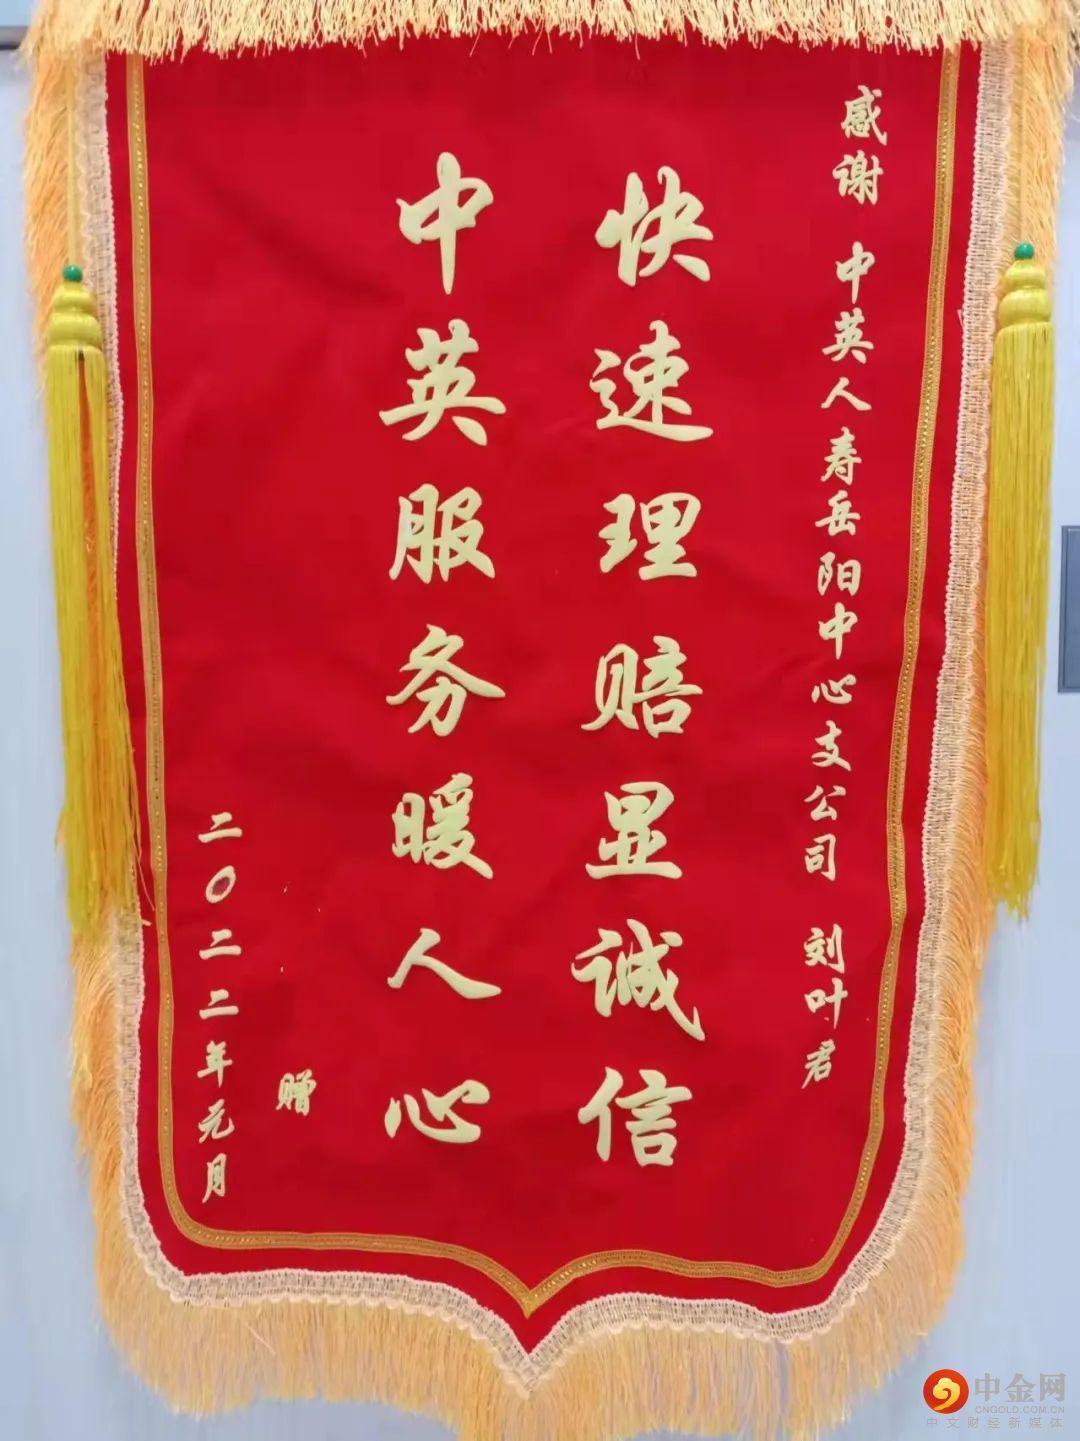 感谢 中英人寿岳阳中心支公司 刘叶君
快速理赔显诚信
中英服务暖人心
赠
二〇二二年元月
中金网
CNGOLD.COM.CN
中文财经新媒体